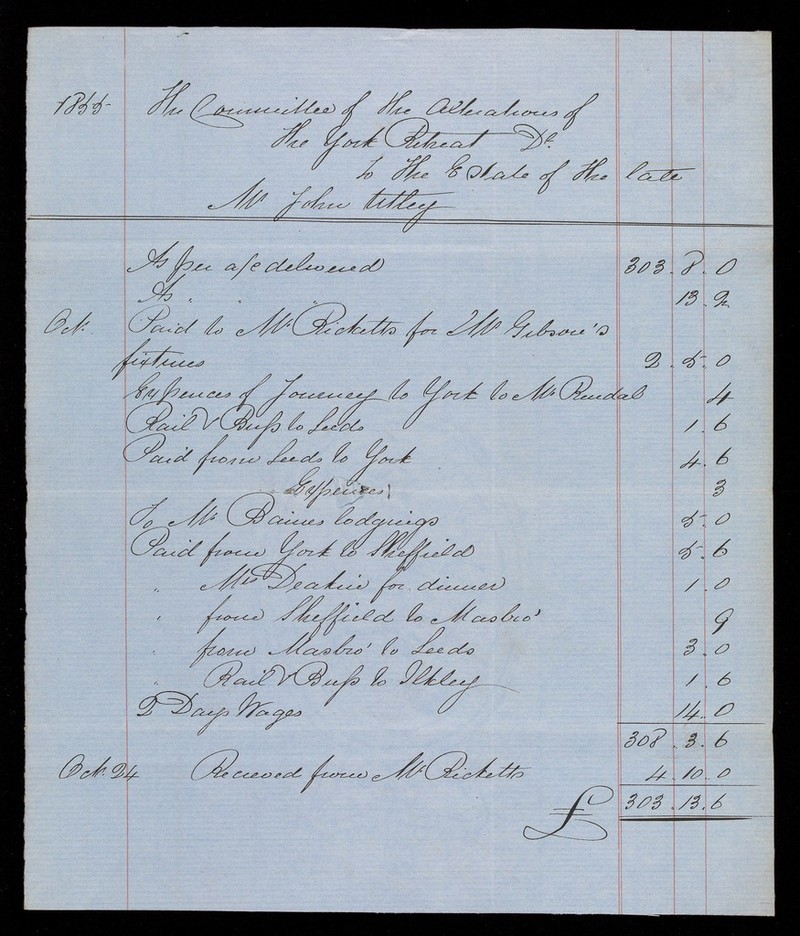 1855 The Committee of the Alterations of
the York Retreat Dr
to the Estate of the late
Mr John Utley
As per a/c delivered 303. 8. 0
As " " 13. 2
Oct. Paid to Mr Ricketts for Mr Gibson's
fixtures 2. 5. 0
Expences of Journey to York to Mr 4
Rail & Buss to Leeds 1. 6
Paid from Leeds to York 4. 6
Expences 3
To Mr Baines lodgings 5. 0
Paid from York to Sheffield 5. 6
" Mrs Deakin for dinner 1. 0
" from Sheffield to Masbro' 9
" from Masbro' to Leeds 3. 0
" Rail & Buss to Ilkley 1. 6
2 Days Wages 14. 0
308. 3. 6
Oct. 24 Recieved from Mr Ricketts 4. 10. 0
£ 303. 13. 6